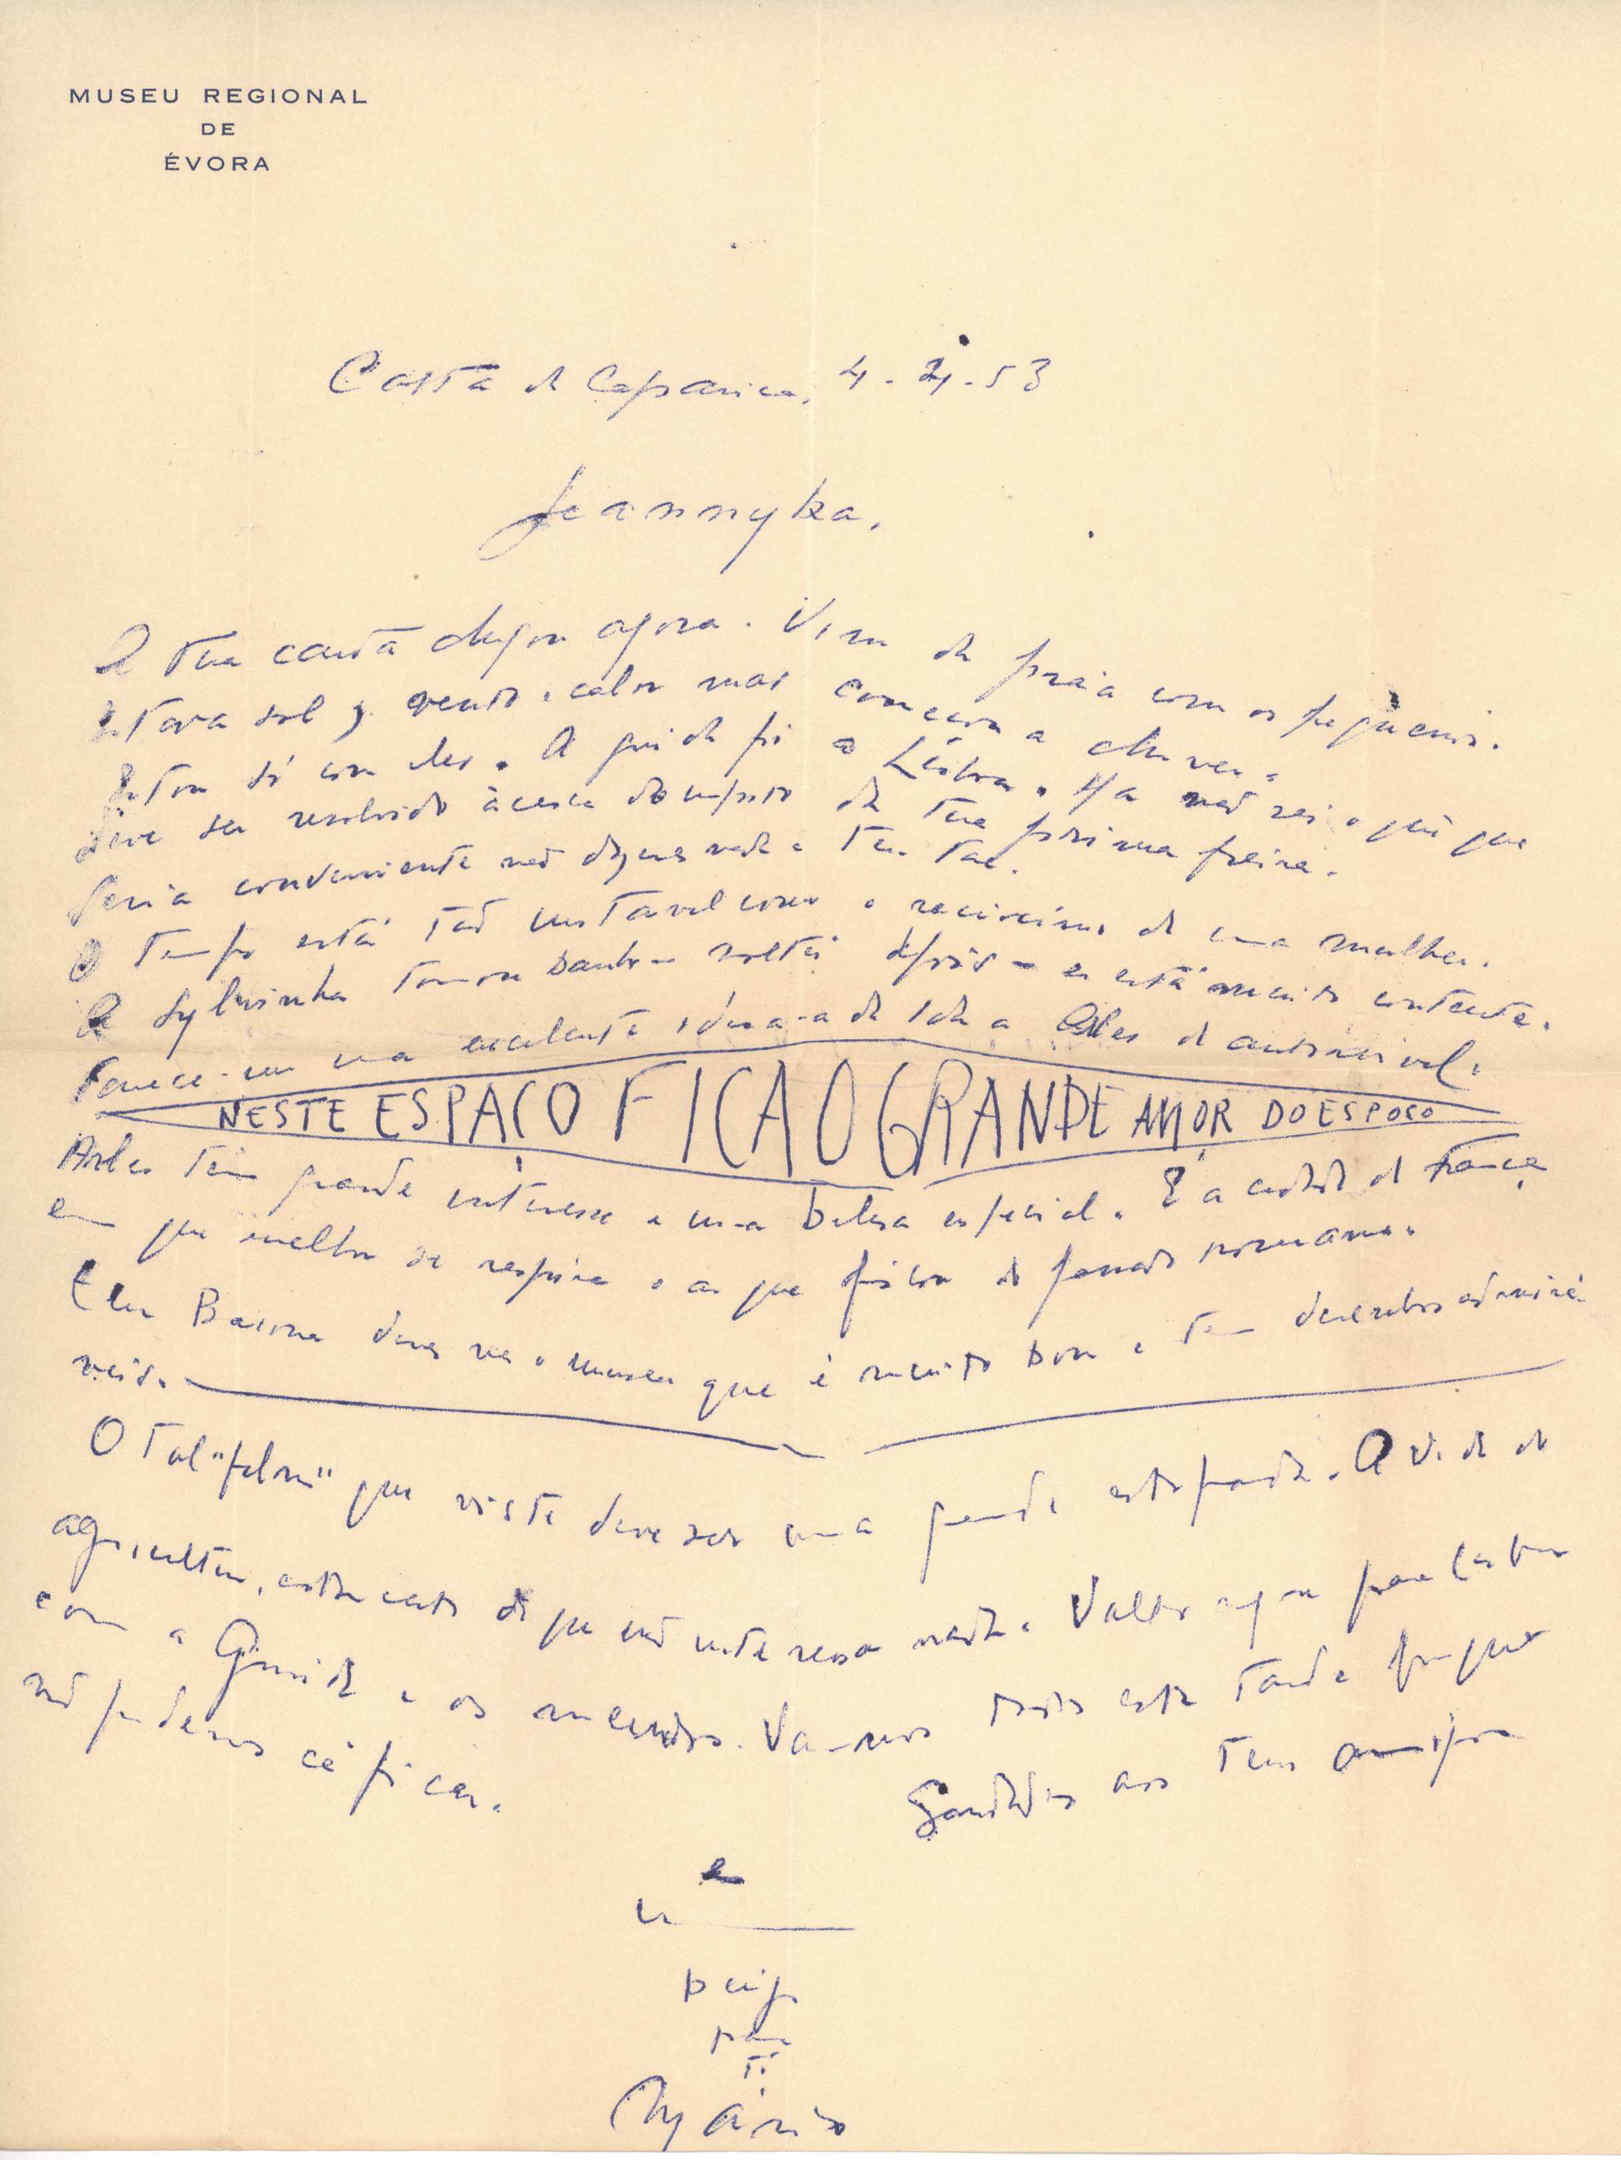 MUSEU REGIONAL
DE
ÉVORA
Costa da Caparica, 4-4-53
Jeannyka,
A tua carta chegou agora. Vim da praia com os pequenos.
Estava sol, vento e calor mas começou a chover.
Estou só com eles. A Guida foi a Lisboa. Já não sei o que que
deve ser resolvido àcerca do da tua prima freira.
Seria conveniente não dizeres nada a teu Pae.
O tempo está tão instavel como o raciocinio de uma mulher.
A Sylvinha tomou banho e voltei depois - e está muito contente.
Parece-me uma excelente idea a da ida a Arles de automovel.
NESTE ESPAÇO FICA O GRANDE AMOR DO ESPOSO
Arles tem grande interesse e uma beleza especial. É a cidade de França
em que melhor se respira o ar que ficou do passado romano.
Em Baiona deves ver o museu que é muito bom e tem desenhos admirá-
veis.
O tal "filme" que viste deve ser uma grande estopada. A vida do
agricultor, estou certo de que não interessa nada. Volto agora para Lisboa
com a Guida e os meninos. Vamos todos esta tarde porque
não podemos cá ficar.
Saudades aos teus amigos
e
um
beijo
para
ti
Mário